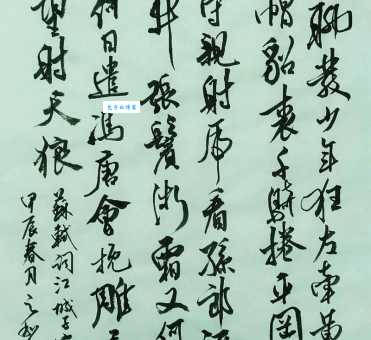 聊發少年狂左牽黃
帽貂裘千騎捲平岡
守親射虎看孫郎
張鬢微霜又何
何日遣馮唐會挽雕
望射天狼
蘇軾詞江城子
甲辰春月之